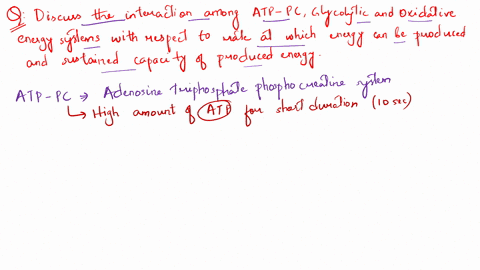 Q: Discuss the interaction among ATP-PC, Glycolytic and Oxidative
energy systems with respect to rate at which energy can be produced
and sustained capacity of produced energy.
ATP-PC ⇒ Adenosine triphosphate phosphocreatine system
↳ High amount of ATP for short duration (10 sec)